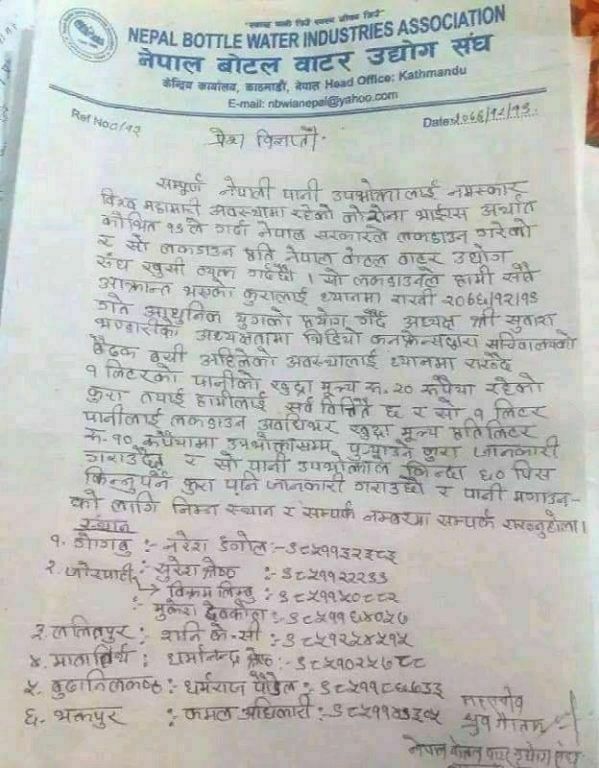 "स्वच्छ पानी पियौं स्वस्थ जीवन जियौं"
NEPAL BOTTLE WATER INDUSTRIES ASSOCIATION
नेपाल बोटल वाटर उद्योग संघ
केन्द्रिय कार्यालय, काठमाडौं, नेपाल Head Office: Kathmandu
E-mail: nbwianepal@yahoo.com
Ref No:
Date:
प्रेश विज्ञाप्ती.
सम्पुर्ण नेपाली पानी उपभोक्तालाई नमस्कार,
विश्व महामारी अवस्थामा रहेको कोरोना भाईरस अर्थात
कोभित १९ ले गर्दा नेपाल सरकारले लकडाउन गरेको
र सो लकडाउन प्रति नेपाल बोटल वाटर उद्योग
संघ खुसी व्यक्त गर्दछौ । सो लकडाउनले हामी सबै
आक्रान्त भएको कुरालाई ध्यानमा राखी २०७६/१२/१३
गते आधुनिक युगको प्रयोग गर्दै अध्यक्ष श्री सुवास
भण्डारीको अध्यक्षतामा भिडियो कन्फ्रेन्सद्वारा सचिवालयको
बैठक बसी अहिलेको अवस्थालाई ध्यानमा राख्दै
१ लिटरको पानीको खुद्रा मूल्य रू. २० रूपैया रहेको
कुरा तपाई हामीलाई सर्व विदितै छ र सो १ लिटर
पानीलाई लकडाउन अवधिभर खुद्रा मूल्य प्रति लिटर
रू. १० रूपैयामा उपभोक्तासम्म पुर्‍याउने कुरा जानकारी
गराउँदछौ र सो पानी उपभोक्ताले किन्दा ६० पिस
किन्नुपर्ने कुरा पनि जानकारी गराउछौ र पानी मगाउन-
को लागि निम्न स्थान र सम्पर्क नम्बरमा सम्पर्क राख्नुहोला ।
स्थान
१. गोंगबु :- नरेश डंगोल :- ९८५११३२३८३
२. जोरपाटी : सुरेश श्रेष्ठ :- ९८५११२२२३३
→ विक्रम लिम्बु : ९८५११५०८८२
: मुकेश देवकोटा : ९८५११६४०५७
३. ललितपुर : शनि के.सी : ९८५१२५४५१५
४. मातातिर्थ : धर्मानन्द श्रेष्ठ :- ९८५१०२५७८८
५. बुढानिलकण्ठ : धर्मराज पौडेल : ९८५११८६७३३
६. भक्तपुर : कमल अधिकारी :
ध्रुव गौतम
नेपाल बोटल वाटर उद्योग संघ